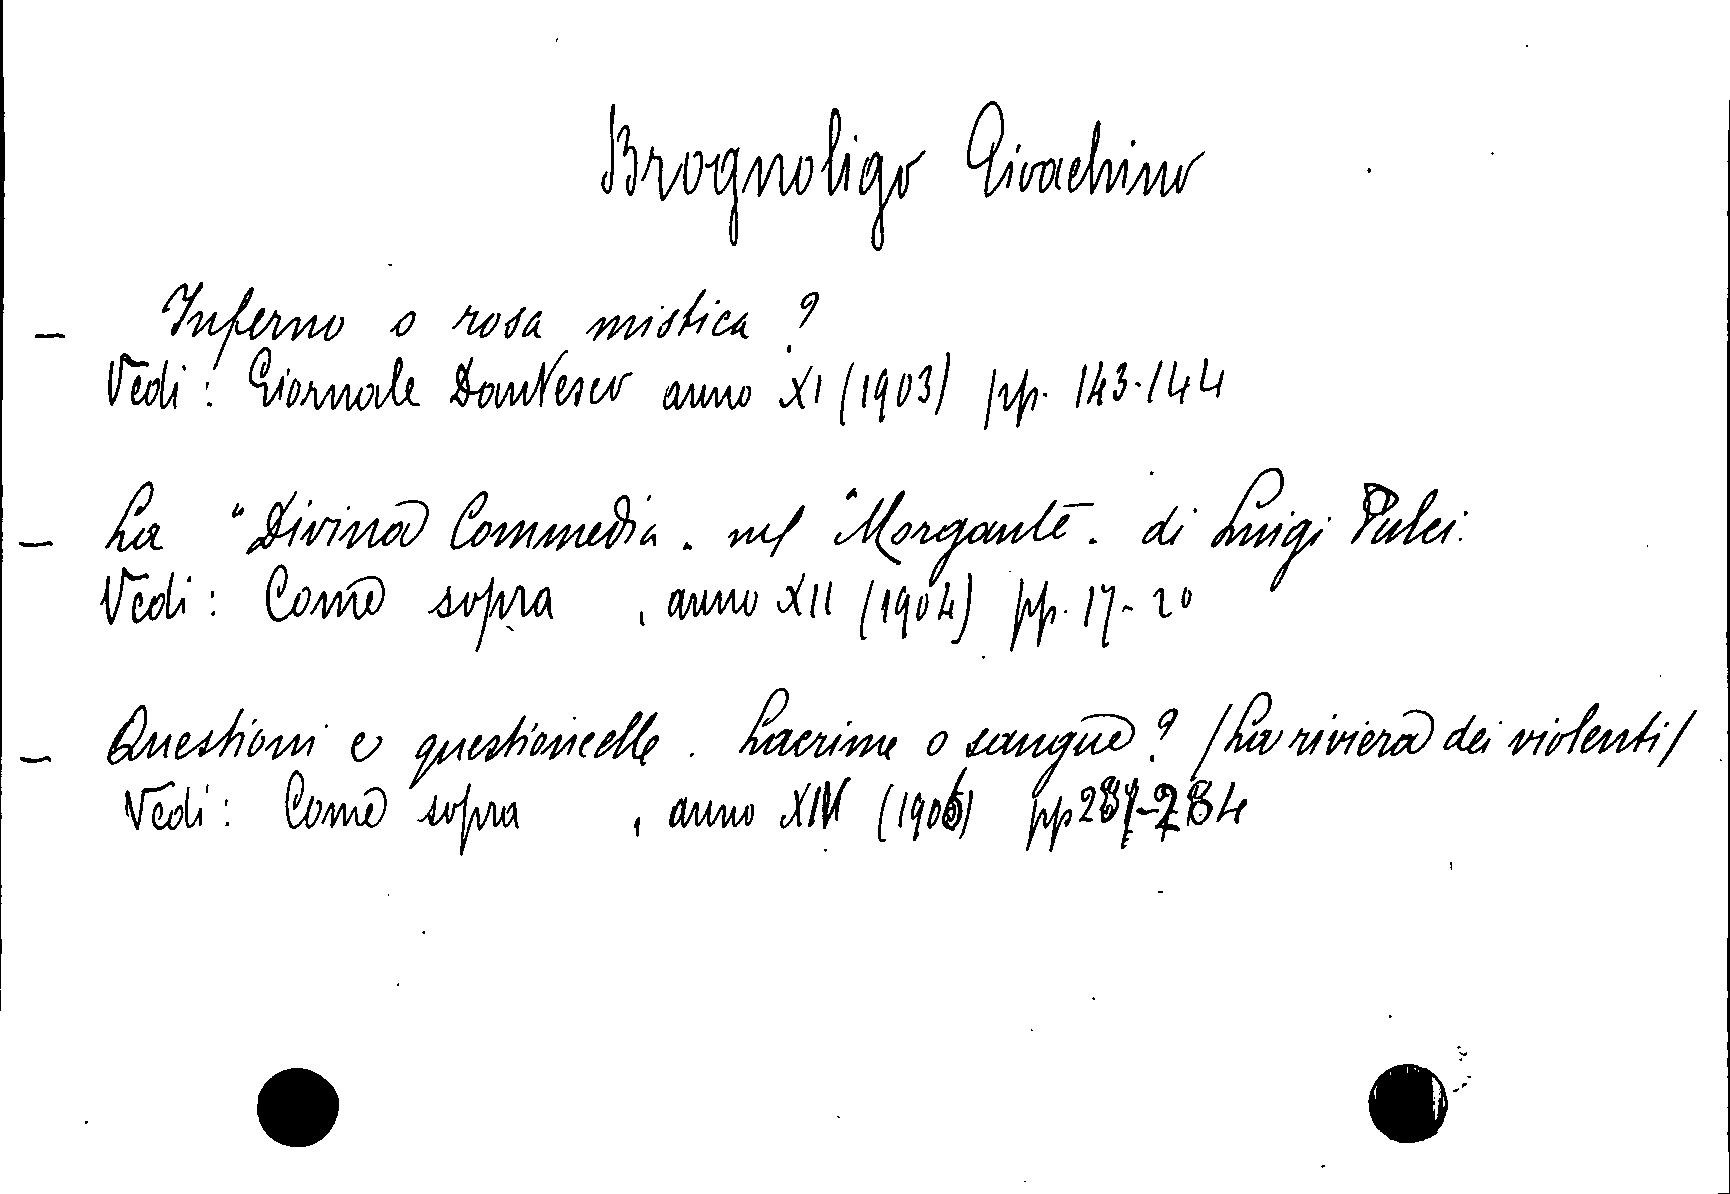 Brognoligo Gioachino
— Inferno o rosa mistica ?
Vedi : Giornale Dantesco anno XI (1903) pp. 143-144
— La "Divina Commedia" nel "Morgante" di Luigi Pulci.
Vedi : Come sopra , anno XII (1904) pp. 17-20
— Questioni e questioncelle . Lacrime o sangue ? /La riviera dei violenti/
Vedi : Come sopra , anno XIV (1906) pp -284